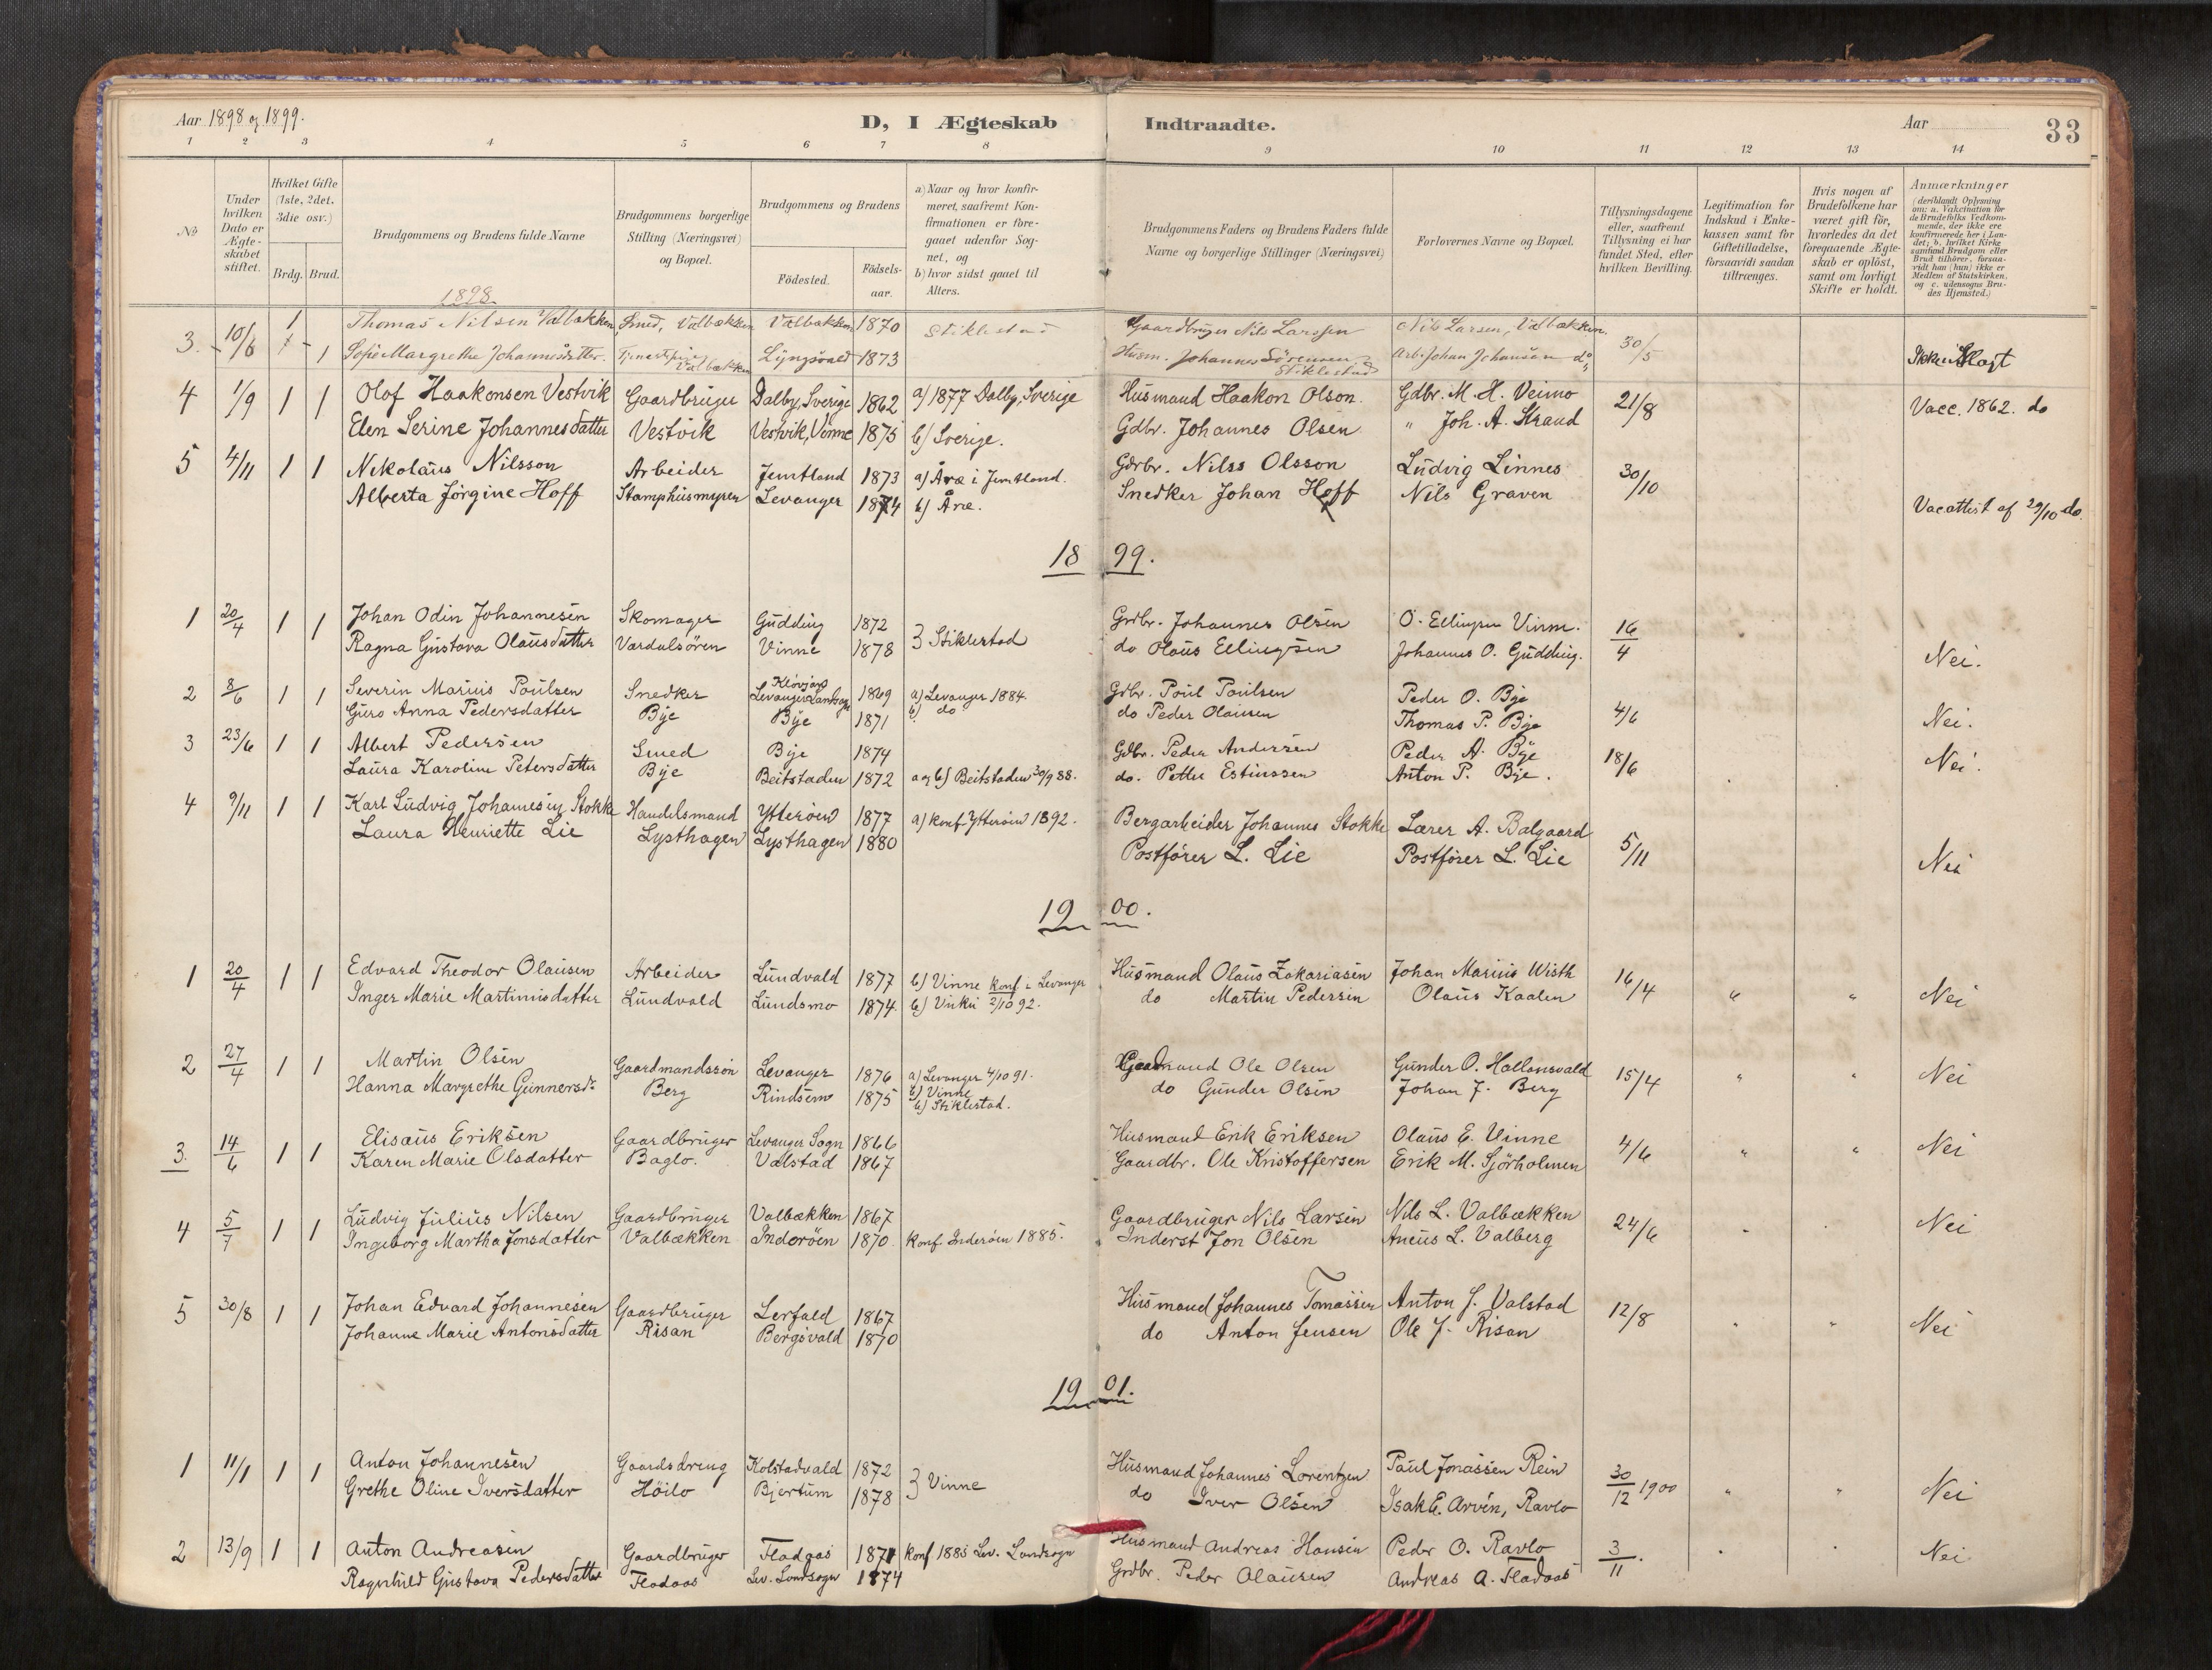 Aar 1898 og 1899.
D, I Ægteskab Indtraadte.
Aar
33
1 2 3 4 5 6 7 8 9 10 11 12 13 14
No
Under hvilken Dato er Ægte-skabet stiftet.
Hvilket Gifte (1ste, 2det, 3die osv.)
Brdg. Brud.
Brudgommens og Brudens fulde Navne
Brudgommens borgerlige Stilling (Næringsvei) og Bopæl.
Brudgommens og Brudens
Fødested.
Fødsels-aar.
a) Naar og hvor konfir-meret, saafremt Kon-firmationen er fore-gaaet udenfor Sog-net, og
b) hvor sidst gaaet til Alters.
Brudgommens Faders og Brudens Faders fulde Navne og borgerlige Stillinger (Næringsvei)
Forlovernes Navne og Bopæl.
Tillysningsdagene eller, saafremt Tillysning ei har fundet Sted, efter hvilken Bevilling.
Legitimation for Indskud i Enke-kassen samt for Giftetilladelse, forsaavidt saadan tiltrænges.
Hvis nogen af Brudefolkene har været gift før, hvorledes da det foregaaende Ægte-skab er opløst, samt om lovligt Skifte er holdt.
Anmærkninger (deriblandt Oplysning om: a. Vakcination for de Brudefolks Vedkom-mende, der ikke ere konfirmerede her i Lan-det; b. hvilket Kirke samfund Brudgom eller Brud tilhører, forsaa-vidt han (hun) ikke er Medlem af Statskirken, og c. udensogns Bru-des Hjemsted.)
1898.
3. 10/6 1 Thomas Nilsen Valbækken Smed, Valbækken Valbækken 1870 Stiklestad Gaardbruger Nils Larssen Nils Larsen, Valbækken. 30/5
1 Sofie Margrethe Johannesdatter. Tjenestepige Valbækken Lyngsvald 1873 Husm. Johannes Sörensen Stiklestad Arb. Johan Johansen do
4 1/9 1 1 Olof Haakonsen Vestvik Gaardbruger Dalby, Sverige 1862 a) 1877 Dalby, Sverige Husmand Haakon Olson. Gdbr. M. H. Veimo 21/8 Vacc. 1862. do
Elen Serine Johannesdatter Vestvik Vestvik, Vinne 1875 b) Sverige. Gdbr. Johannes Olsen " Joh. A. Strand
5 4/11 1 1 Nikolaus Nilsson Arbeider Jemtland 1873 a) Åre i Jemtland. Gdrbr. Nilss Olsson Ludvig Linnes 30/10
Alberta Jörgine Hoff Stamphusmyren Levanger 1874 b) Åre. Snedker Johan Hoff Nils Graven Vacattest af 29/10 do.
1899.
1 20/4 1 1 Johan Odin Johannesen Skomager Gudding 1872 } Stiklestad Grdbr. Johannes Olsen O. Ellingsen Vinne. 16/4
Ragna Gustava Olausdatter Værdalsören Vinne 1878 do Olaus Ellingsen Johannes O. Gudding. Nei.
2 8/6 1 1 Severin Marius Poulsen Snedker Levanger Landsogn 1869 a) Levanger 1884. Grdbr. Poul Poulsen Peder O. Bye 4/6
Guro Anna Pedersdatter Bye Bye 1871 b) do do Peder Olausen Thomas P. Bye Nei.
3 23/6 1 1 Albert Pedersen Smed Bye 1874 Gdbr. Peder Andersen Peder A. Bye 18/6 Nei.
Laura Karoline Petersdatter Bye Beitstaden 1872 a og b) Beitstaden 30/9 88. do. Petter Estinssen Anton P. Bye.
4 9/11 1 1 Karl Ludvig Johannesen Stokke Handelsmand Ytterøen 1877 a) konf. Ytterøen 1892. Bergarbeider Johannes Stokke Lærer A. Balgaard 5/11
Laura Henriette Lie Lysthagen Lysthagen 1880 Postfører L. Lie Postfører L. Lie Nei
1900.
1 20/4 1 1 Edvard Theodor Olausen Arbeider Lundvald 1877 b) Vinne konf i Levanger Husmand Olaus Zakariasen Johan Marius Wisth 16/4
Inger Marie Martinusdatter Lundvald Lundsmo 1874 b) Vuku 2/10 92. do Martin Pedersen Olaus Kaalen " " Nei
2 27/4 1 1 Martin Olsen Gaardmandssön Levanger 1876 a) Levanger 4/10 91. b) Vinne Gaardmand Ole Olsen Gunder O. Hallemsvald 15/4 " " Nei
Hanna Margrethe Gunnersdr Berg Rindsem 1875 b) Stiklestad. do Gunder Olsen Johan J. Berg
3. 14/6 1 1 Elisæus Eriksen Gaardbruger Levanger Sogn 1866 Husmand Erik Eriksen Olaus E. Vinne 4/6 " " Nei
Karen Marie Olsdatter Baglo. Valstad 1867 Gaardbr. Ole Kristoffersen Erik M. Sjörholmen
4 5/7 1 1 Ludvig Julius Nilsen Gaardbruger Valbækken 1867 Gaardbruger Nils Larsen Nils L. Valbækken 24/6 Nei
Ingeborg Martha Jonsdatter Valbækken Inderöen 1870 Konf. Inderöen 1885. Inderst Jon Olsen Aneus L. Valberg
5 30/8 1 1 Johan Edvard Johannesen Gaardbruger Lerfald 1867 Husmand Johannes Tomassen Anton J. Valstad 12/8
Johanne Marie Antonsdatter Risan Bergsvald 1870 do Anton Jensen Ole J. Risan " " Nei
1901.
1 11/1 1 1 Anton Johannesen Gaardsdreng Kolstadvald 1872 } Vinne Husmand Johannes Lorentzen Paul Jonassen Rein 30/12 1900 " " Nei
Grethe Oline Iversdatter Höilo Bjertum 1878 do Iver Olsen Isak E. Arvén, Ravlo
2 13/9 1 1 Anton Andreasen Gaardbruger Fladaas 1871 Konf 1885 Lev. Landsogn Husmand Andreas Hansen Peder O. Ravlo 3/11. Nei
Ragnhild Gustava Pedersdatter Fladaas Lev. Landsogn 1874 Grdbr. Peder Olausen Andreas A. Fladaas